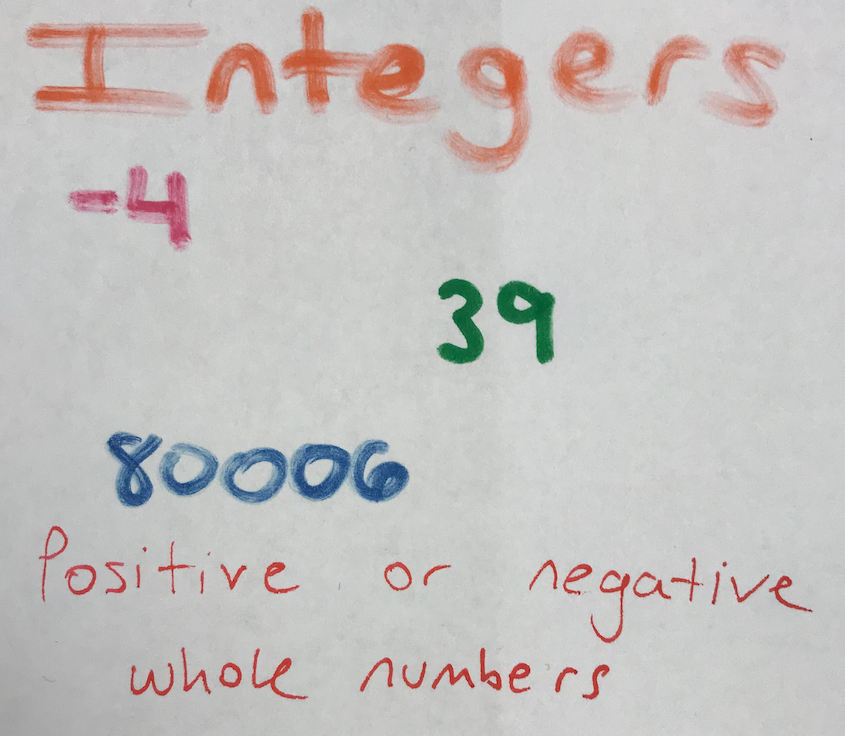 Integers
-4
39
80006
Positive or negative
whole numbers